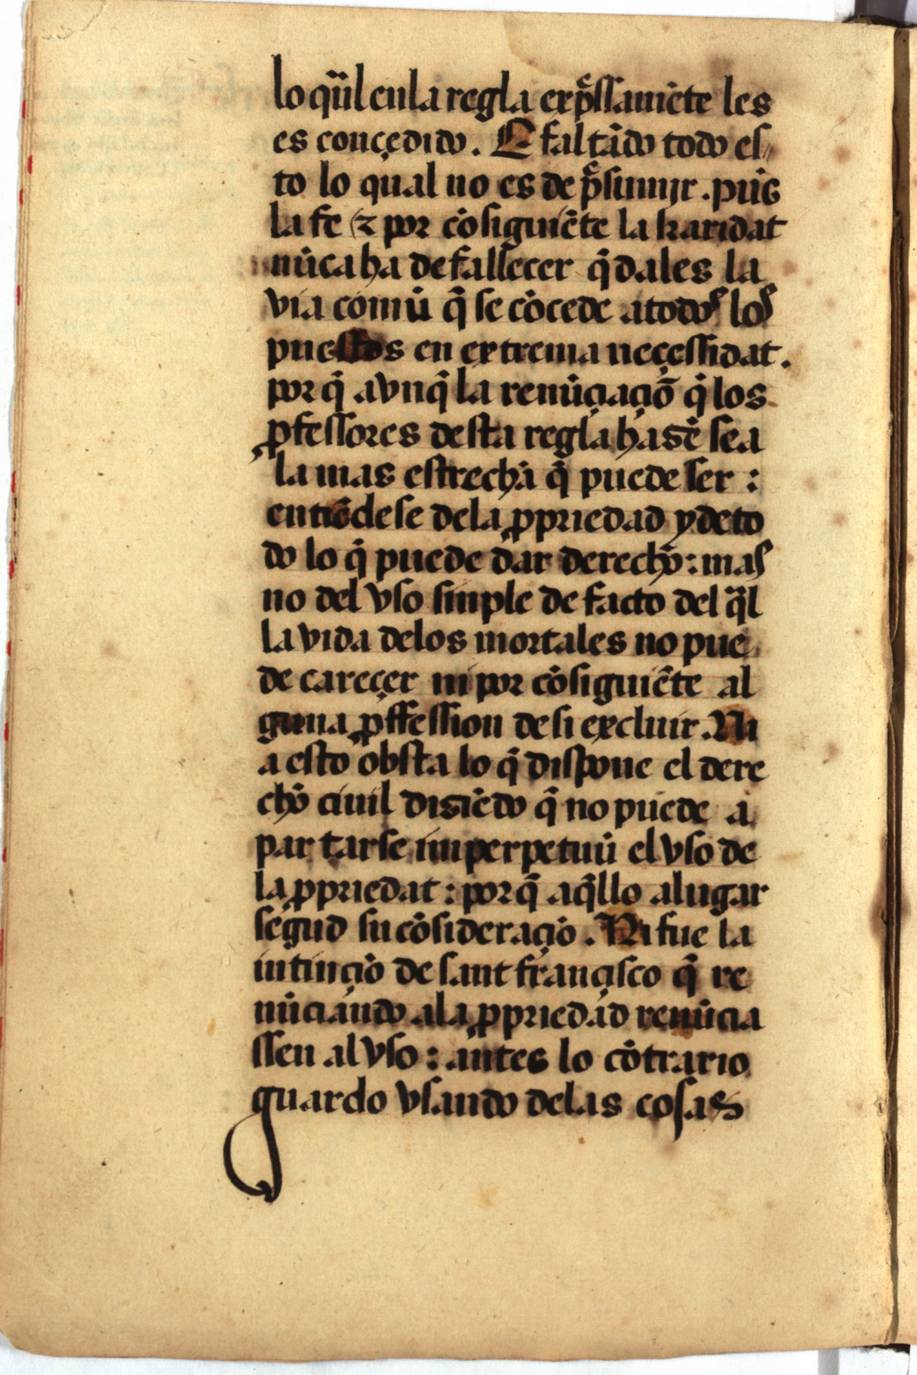 lo q̃l en la regla exp̃ssamẽte les
es conçedido. E faltãdo todo es
to lo qual no es de p̃sumir. pues
la fe ⁊ por cõsiguiẽte la karidat
nũca ha de fallecer q̃dales la
via comũ q̃ se cõcede a todos los
puestos en extrema neçessidat.
por q̃ avnq̃ la renũçiaçiõ q̃ los
ꝓfessores desta regla hasẽ sea
la mas estrecha q̃ puede ser :
entiẽdese dela ꝓpriedad y de to
do lo q̃ puede dar derecho : mas
no del vso sinple de facto del q̃l
la vida delos mortales no pue
de careçer ni por cõsiguiẽte al
guna ꝓffession de si excluir. Ni
a esto obsta lo q̃ dispone el dere
cho ciuil disiẽdo q̃ no puede a
partarse in perpetuũ el vso de
la ꝓpriedat : por q̃ aq̃llo a lugar
segũd su cõsideraçiõ. Ni fue la
intinçiõ de sant françisco q̃ re
nũciando ala ꝓpriedad renũcia
ssen al vso : antes lo cõtrario
guardo vsando delas cosas